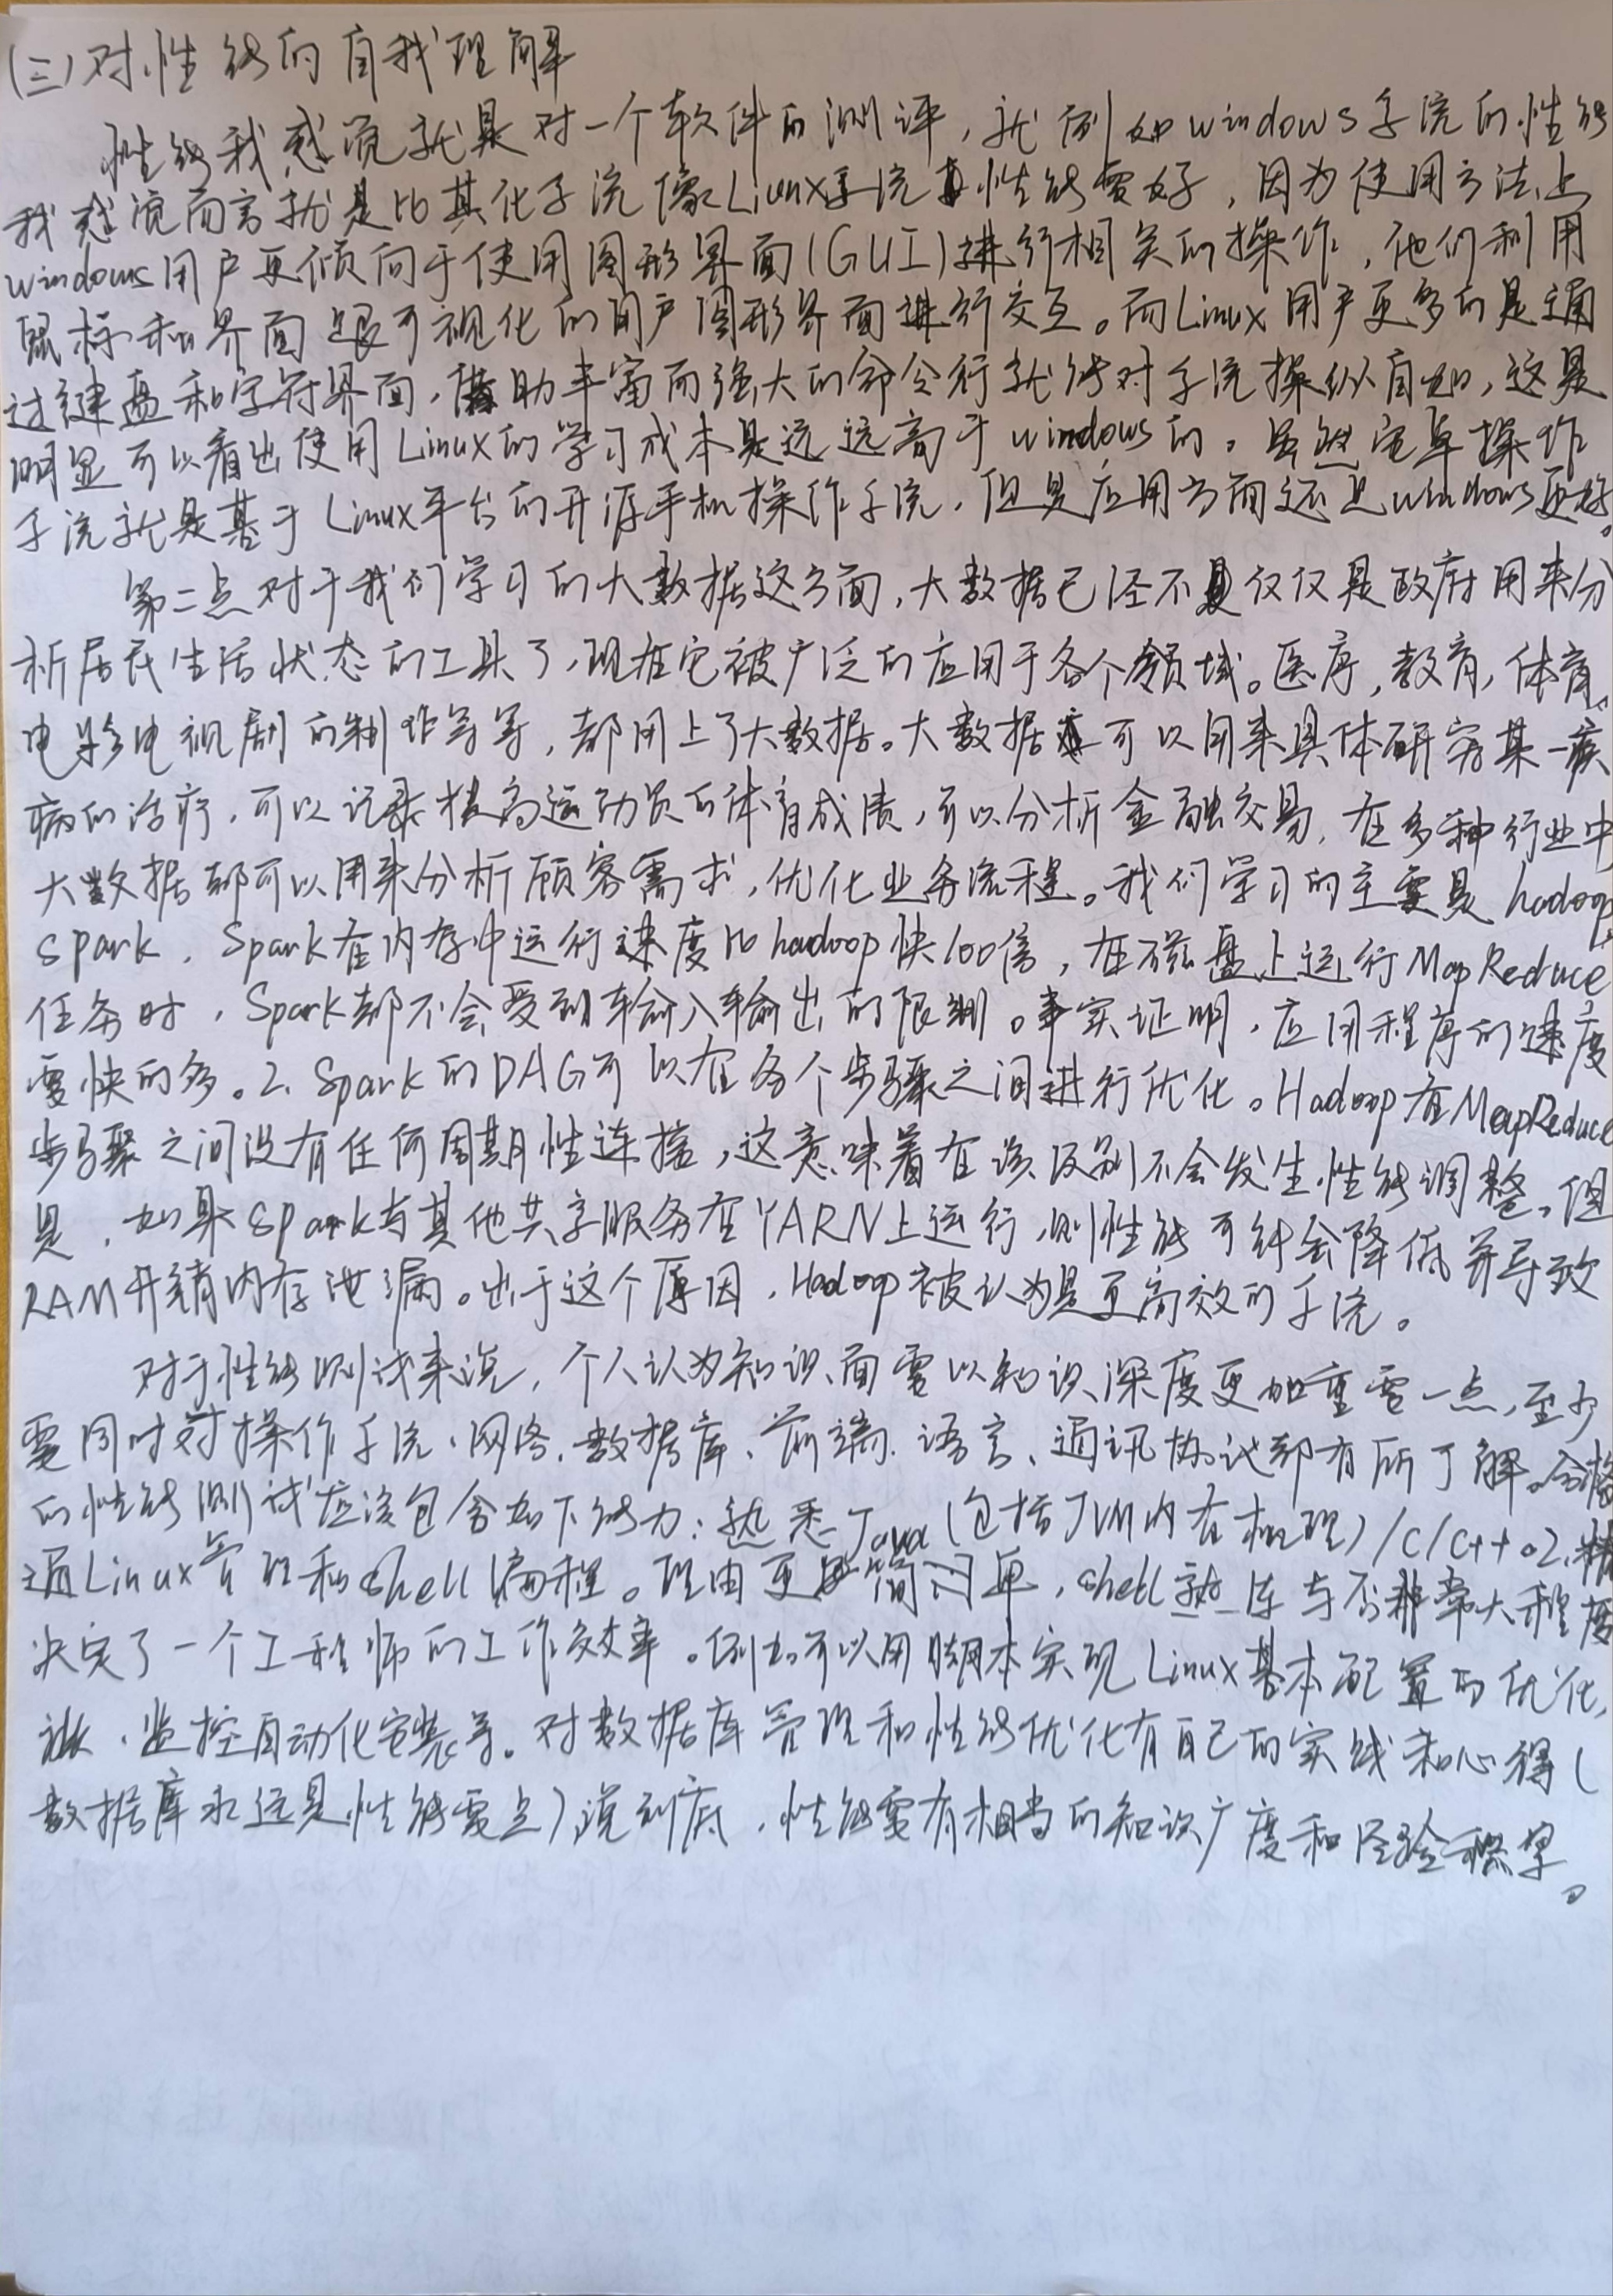 (三)对性能的自我理解
性能我感觉就是对一个软件的测评,就例如windows系统的性能
我感觉而言就是比其他系统像Linux系统其性能要好,因为使用方法上
windows用户更倾向于使用图形界面(GUI)进行相关的操作,他们利用
鼠标和界面跟可视化的用户图形界面进行交互。而Linux用户更多的是通
过键盘和字符界面,借助丰富而强大的命令行就能对系统操纵自如,这是
明显可以看出使用Linux的学习成本是远远高于windows的。虽然安卓操作
系统就是基于Linux平台的开源手机操作系统,但是应用方面还是windows更好。
第二点对于我们学习的大数据这方面,大数据已经不是仅仅是政府用来分
析居民生活状态的工具了,现在它被广泛的应用于各个领域。医疗,教育,体育、
电影电视剧的制作等等,都用上了大数据。大数据可以用来具体研究某一疾
病的治疗,可以记录提高运动员的体育成绩,可以分析金融交易,在多种行业中
大数据都可以用来分析顾客需求,优化业务流程。我们学习的主要是hadoop,
spark,Spark在内存中运行速度比hadoop快100倍,在磁盘上运行MapReduce
任务时,Spark都不会受到输入输出的限制。事实证明,应用程序的速度
要快的多。2、Spark的DAG可以在各个步骤之间进行优化。Hadoop在MapReduce
步骤之间没有任何周期性连接,这意味着在该级别不会发生性能调整。但
是,如果Spark与其他共享服务在YARN上运行,则性能可能会降低并导致
RAM开销内存泄漏。出于这个原因,Hadoop被认为是更高效的系统。
对于性能测试来说,个人认为知识面要比知识深度更加重要一点,至少
要同时对操作系统、网络、数据库、前端、语言、通讯协议都有所了解。合格
的性能测试应该包含如下能力:熟悉Java(包括JVM内存机理)/C/C++。2、精
通Linux管理和Shell编程。理由更简单,shell熟练与否非常大程度
决定了一个工程师的工作效率。例如可以用脚本实现Linux基本配置的优化,
监控自动化安装等。对数据库管理和性能优化有自己的实践和心得(
数据库永远是性能要点)说到底,性能要有相当的知识广度和经验积累。